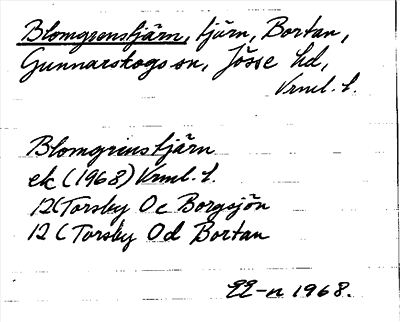 Blomgrenstjärn, tjärn, Bortan,
Gunnarskogs sn, Jösse hd,
Vrml. l.
Blomgrenstjärn
ek (1968) Vrml. l.
12C Torsby Oc Borgsjön
12C Torsby Od Bortan
EE-n 1968.